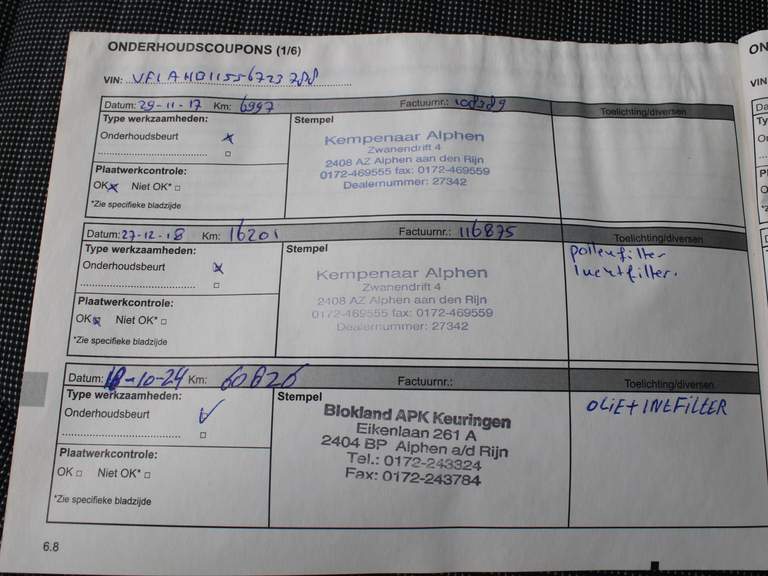 ONDERHOUDSCOUPONS (1/6)
VIN:
Datum: 29-11-17 Km: 6997 Factuurnr.: Toelichting/diversen
Type werkzaamheden: Stempel
Onderhoudsbeurt
Kempenaar Alphen
Zwanendrift 4
2408 AZ Alphen aan den Rijn
0172-469555 fax: 0172-469559
Dealernummer: 27342
Plaatwerkcontrole:
OK Niet OK*
*Zie specifieke bladzijde
Datum: 27-12-18 Km: 16201 Factuurnr.: 116875 Toelichting/diversen
Type werkzaamheden: Stempel
Onderhoudsbeurt
Kempenaar Alphen
Zwanendrift 4
2408 AZ Alphen aan den Rijn
0172-469555 fax: 0172-469559
Dealernummer: 27342
pollenfilter
luchtfilter.
Plaatwerkcontrole:
OK Niet OK*
*Zie specifieke bladzijde
Datum: 18-10-24 Km: 60626 Factuurnr.: Toelichting/diversen
Type werkzaamheden: Stempel
Onderhoudsbeurt
Blokland APK Keuringen
Eikenlaan 261 A
2404 BP Alphen a/d Rijn
Tel.: 0172-243324
Fax: 0172-243784
OLIE+INTFILTER
Plaatwerkcontrole:
OK Niet OK*
*Zie specifieke bladzijde
6.8
ON
VIN